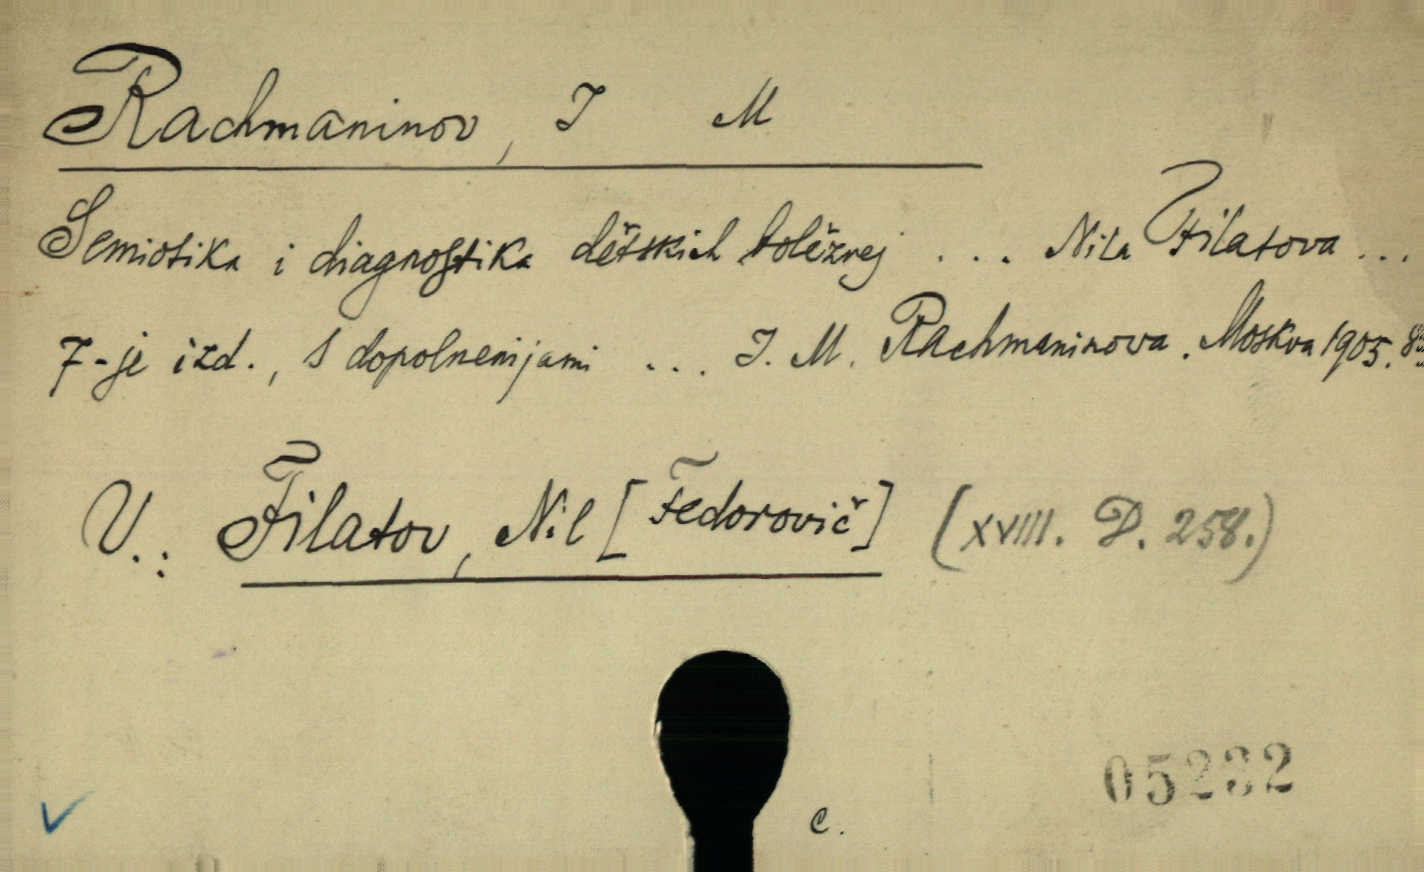 Rachmaninov, I M
Semiotika i diagnostika dětskich bolěznej ... Nila Filatova ...
7-je izd., s dopolnenijami ... I. M. Rachmaninova. Moskva 1905. 8°
V.: Filatov, Nil [Fedorovič] (XVIII. D. 258.)
05232
c.